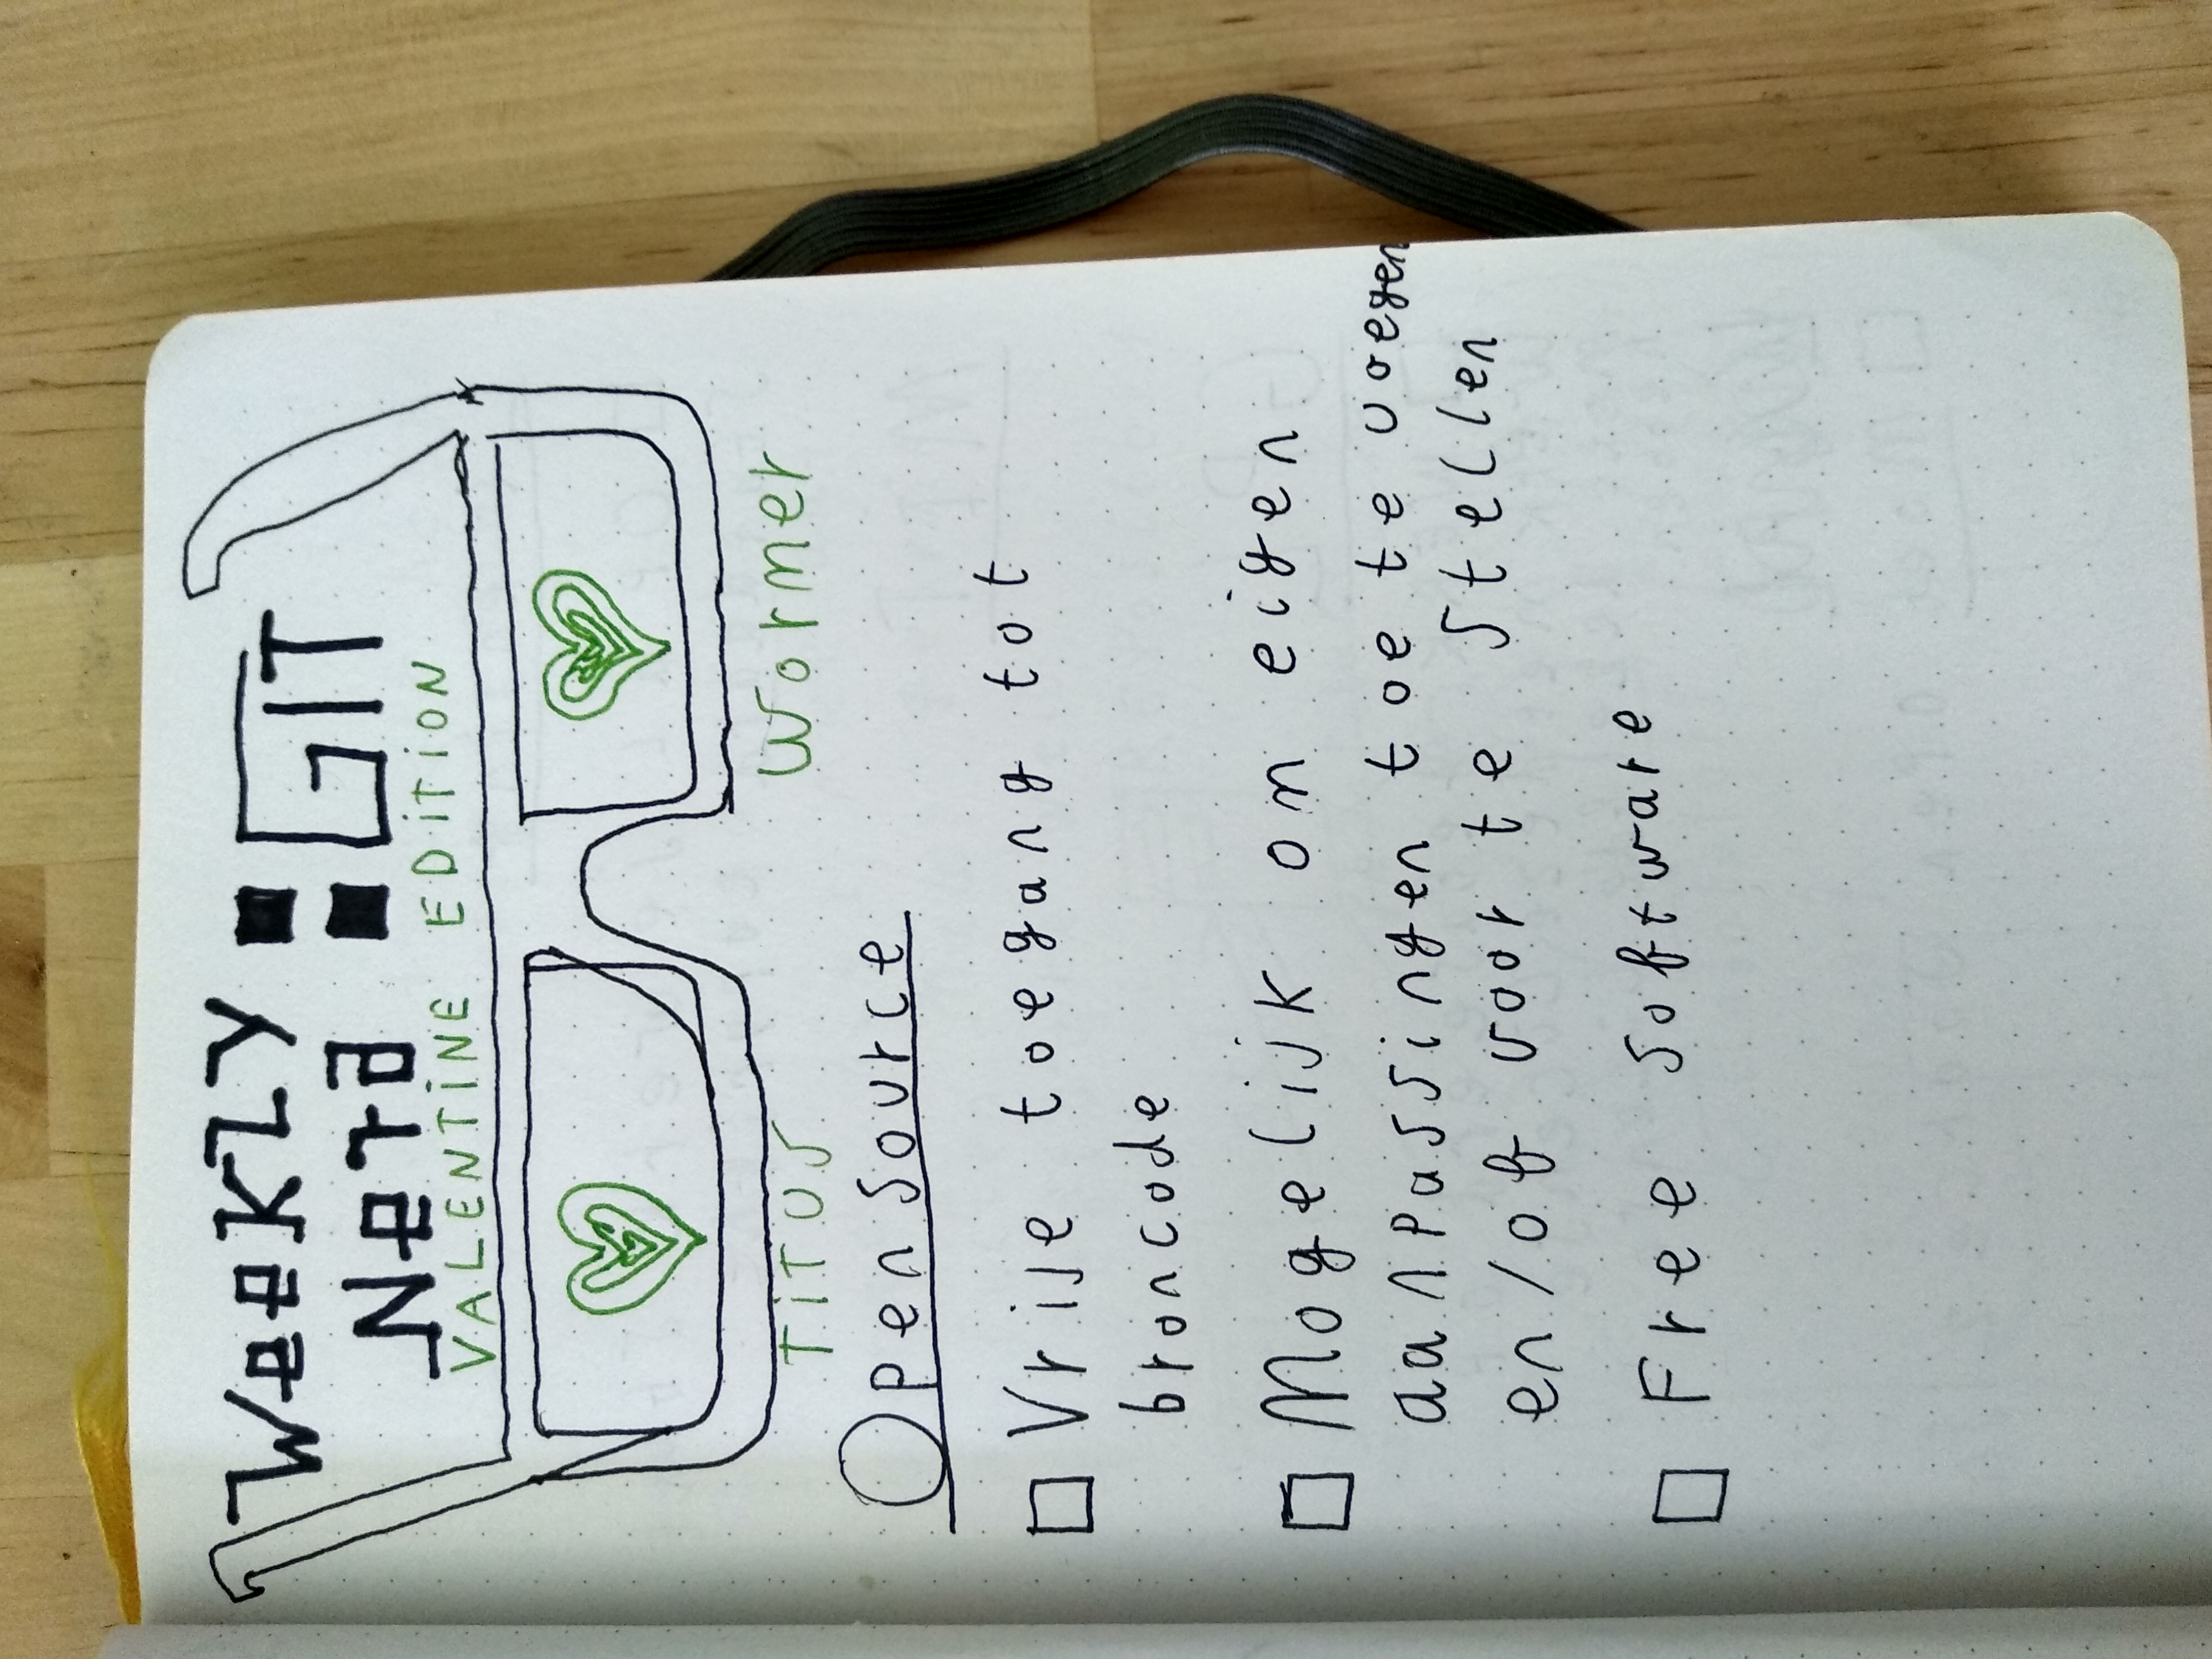 Weekly : GIT
Nerd
VALENTiNE EDiTiON
TiTUS Wormer
Open Source
Vrije toegang tot
broncode
Mogelijk om eigen
aanpassingen toe te voegen
en/of voor te stellen
Free Software